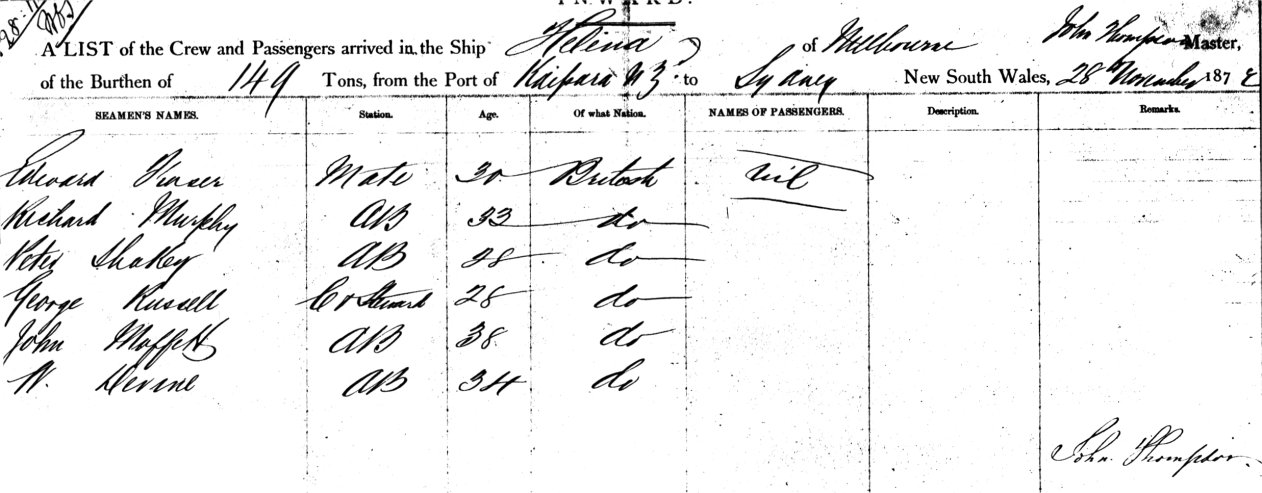 INWARD.
28.11
A LIST of the Crew and Passengers arrived in the Ship Helena of Melbourne John Thompson Master,
of the Burthen of 149 Tons, from the Port of Kaipara N Z. to Sydney New South Wales, 28th November 187
SEAMEN'S NAMES. Station. Age. Of what Nation. NAMES OF PASSENGERS. Description. Remarks.
Edward Fraser Mate 30 British nil
Richard Murphy AB 33 do
Peter Shakey AB 28 do
George Russell C & Steward 28 do
John Moffett AB 38 do
W. Devine AB 34 do
John Thompson.